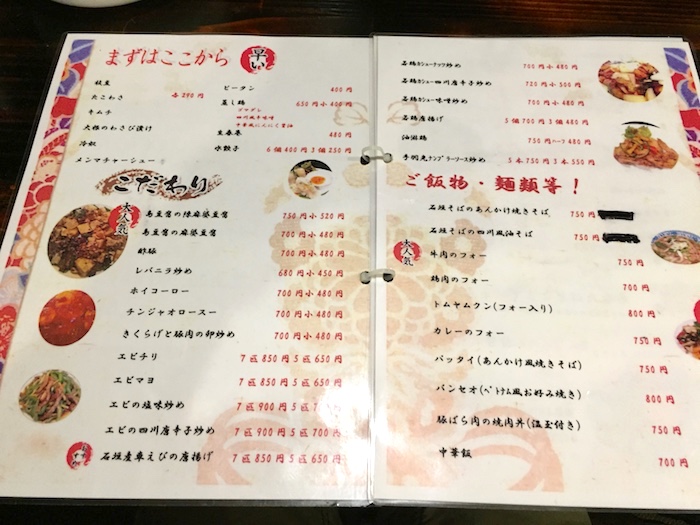 まずはここから
早い
枝豆
たこわさ 各290円
キムチ
大根のわさび漬け
冷奴
メンマチャーシュー
ピータン 400円
蒸し鶏 650円 小400円
ゴマダレ
四川風辛味噌
中華風にんにく醤油
生春巻 480円
水餃子 6個400円 3個250円
こだわり
大人気
島豆腐の辣麻婆豆腐 750円 小520円
島豆腐の麻婆豆腐 700円 小480円
酢豚 700円 小480円
レバニラ炒め 680円 小450円
ホイコーロー 700円 小480円
チンジャオロースー 700円 小480円
きくらげと豚肉の卵炒め 700円 小480円
エビチリ 7匹850円 5匹650円
エビマヨ 7匹850円 5匹650円
エビの塩味炒め 7匹900円 5匹700円
エビの四川唐辛子炒め 7匹900円 5匹700円
石垣産車えびの唐揚げ 7匹850円 5匹650円
若鶏カシューナッツ炒め 700円 小480円
若鶏カシュー四川唐辛子炒め 720円 小500円
若鶏カシュー味噌炒め 700円 小480円
若鶏唐揚げ 5個700円 3個480円
油淋鶏 750円 ハーフ480円
手羽先ナンプラーソース炒め 5本750円 3本550円
ご飯物・麺類等！
石垣そばのあんかけ焼きそば 750円
石垣そばの四川風油そば 750円
大人気
牛肉のフォー 750円
鶏肉のフォー 700円
トムヤムクン(フォー入り) 800円
カレーのフォー 750円
パッタイ(あんかけ風焼きそば) 750円
バンセオ(ベトナム風お好み焼き) 800円
豚ばら肉の焼肉丼(温玉付き) 750円
中華飯 700円